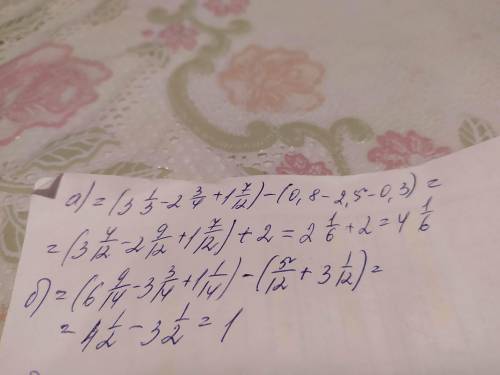 а) = (3 1/3 - 2 3/4 + 1 7/12) - (0,8 - 2,5 - 0,3) =
= (3 4/12 - 2 9/12 + 1 7/12) + 2 = 2 1/6 + 2 = 4 1/6
б) = (6 9/14 - 3 3/14 + 1 1/14) - (5/12 + 3 1/12) =
= 4 1/2 - 3 1/2 = 1